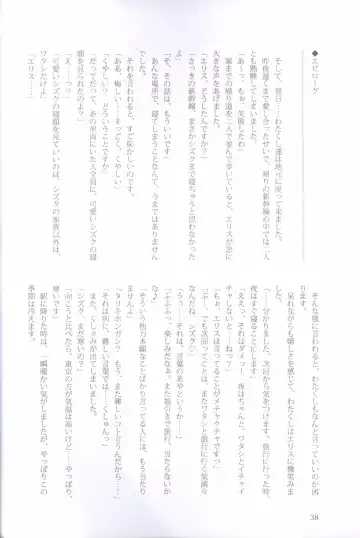 ●エピローグ
そして、翌日――わたくし達は地元に戻って来ました。
昨夜遅くまで愛し合ったせいで、帰りの新幹線では二人
とも熟睡してしまいました。
「あ〜っ、もぉ、失敗したわ」
家までの帰り道を二人で並んで歩いていると、エリスが急に
大きな声をあげました。
「エリス、どうしたんですか？」
「さっきの新幹線、まさかシズクまで寝ちゃうと思わなかった
よ」
「そ、その話は、もういいです」
あんな場所で、寝てしまうことなんて、今まではありません
でした。
それを言われると、すご恥かしいのです。
「ああ、悔しい……すっごく、くやしい」
「くやしい？ どうしてですか？」
「だってだって、あの車両にいた人全員に、可愛いシズクの寝
顔を見られたのよ」
「え……っ？」
「可愛いシズクの寝顔を見ていいのは、シズクの家族以外は、
ワタシだけよ」
「エリス……」
そんな風に言われると、わたくしもなんと言っていいのか困
ります。
呆れながらも嬉しさを感じて、わたくしはエリスに微笑みま
す。
「分かりました。次回から気をつけます。旅行に行った時、
夜はすぐ寝ることにします」
「ええっ、それはダメっ！ 夜はちゃんと、ワタシとイチャイ
チャしないと――ねっ？」
「もぉ、エリスは言ってることがメチャクチャです」
「ぷー、でも次回ってことは、またワタシと旅行に行く気満々
なんだね、シズク♪」
「……それは、言葉のあやというか……」
「ふふふっ、楽しみだなぁ。また福引きで旅行、当たらないか
な♪」
「そういう他力本願なことばかり言ってる人には、当たり
ませんよ」
「タリキホンガン？ もう、また難しいコト言うんだから……」
「それは別に、難しい言葉では……くしゅんっ」
また、くしゃみが出てしまいました。
「シズク、まだ寒いの？」
「向こうと比べたら、東京の方が気温は高いけど……やっぱり、
寒いです」
駅に降りた時は、一瞬暖かい気がしましたが、やっぱりこの
季節は冷えます。
38